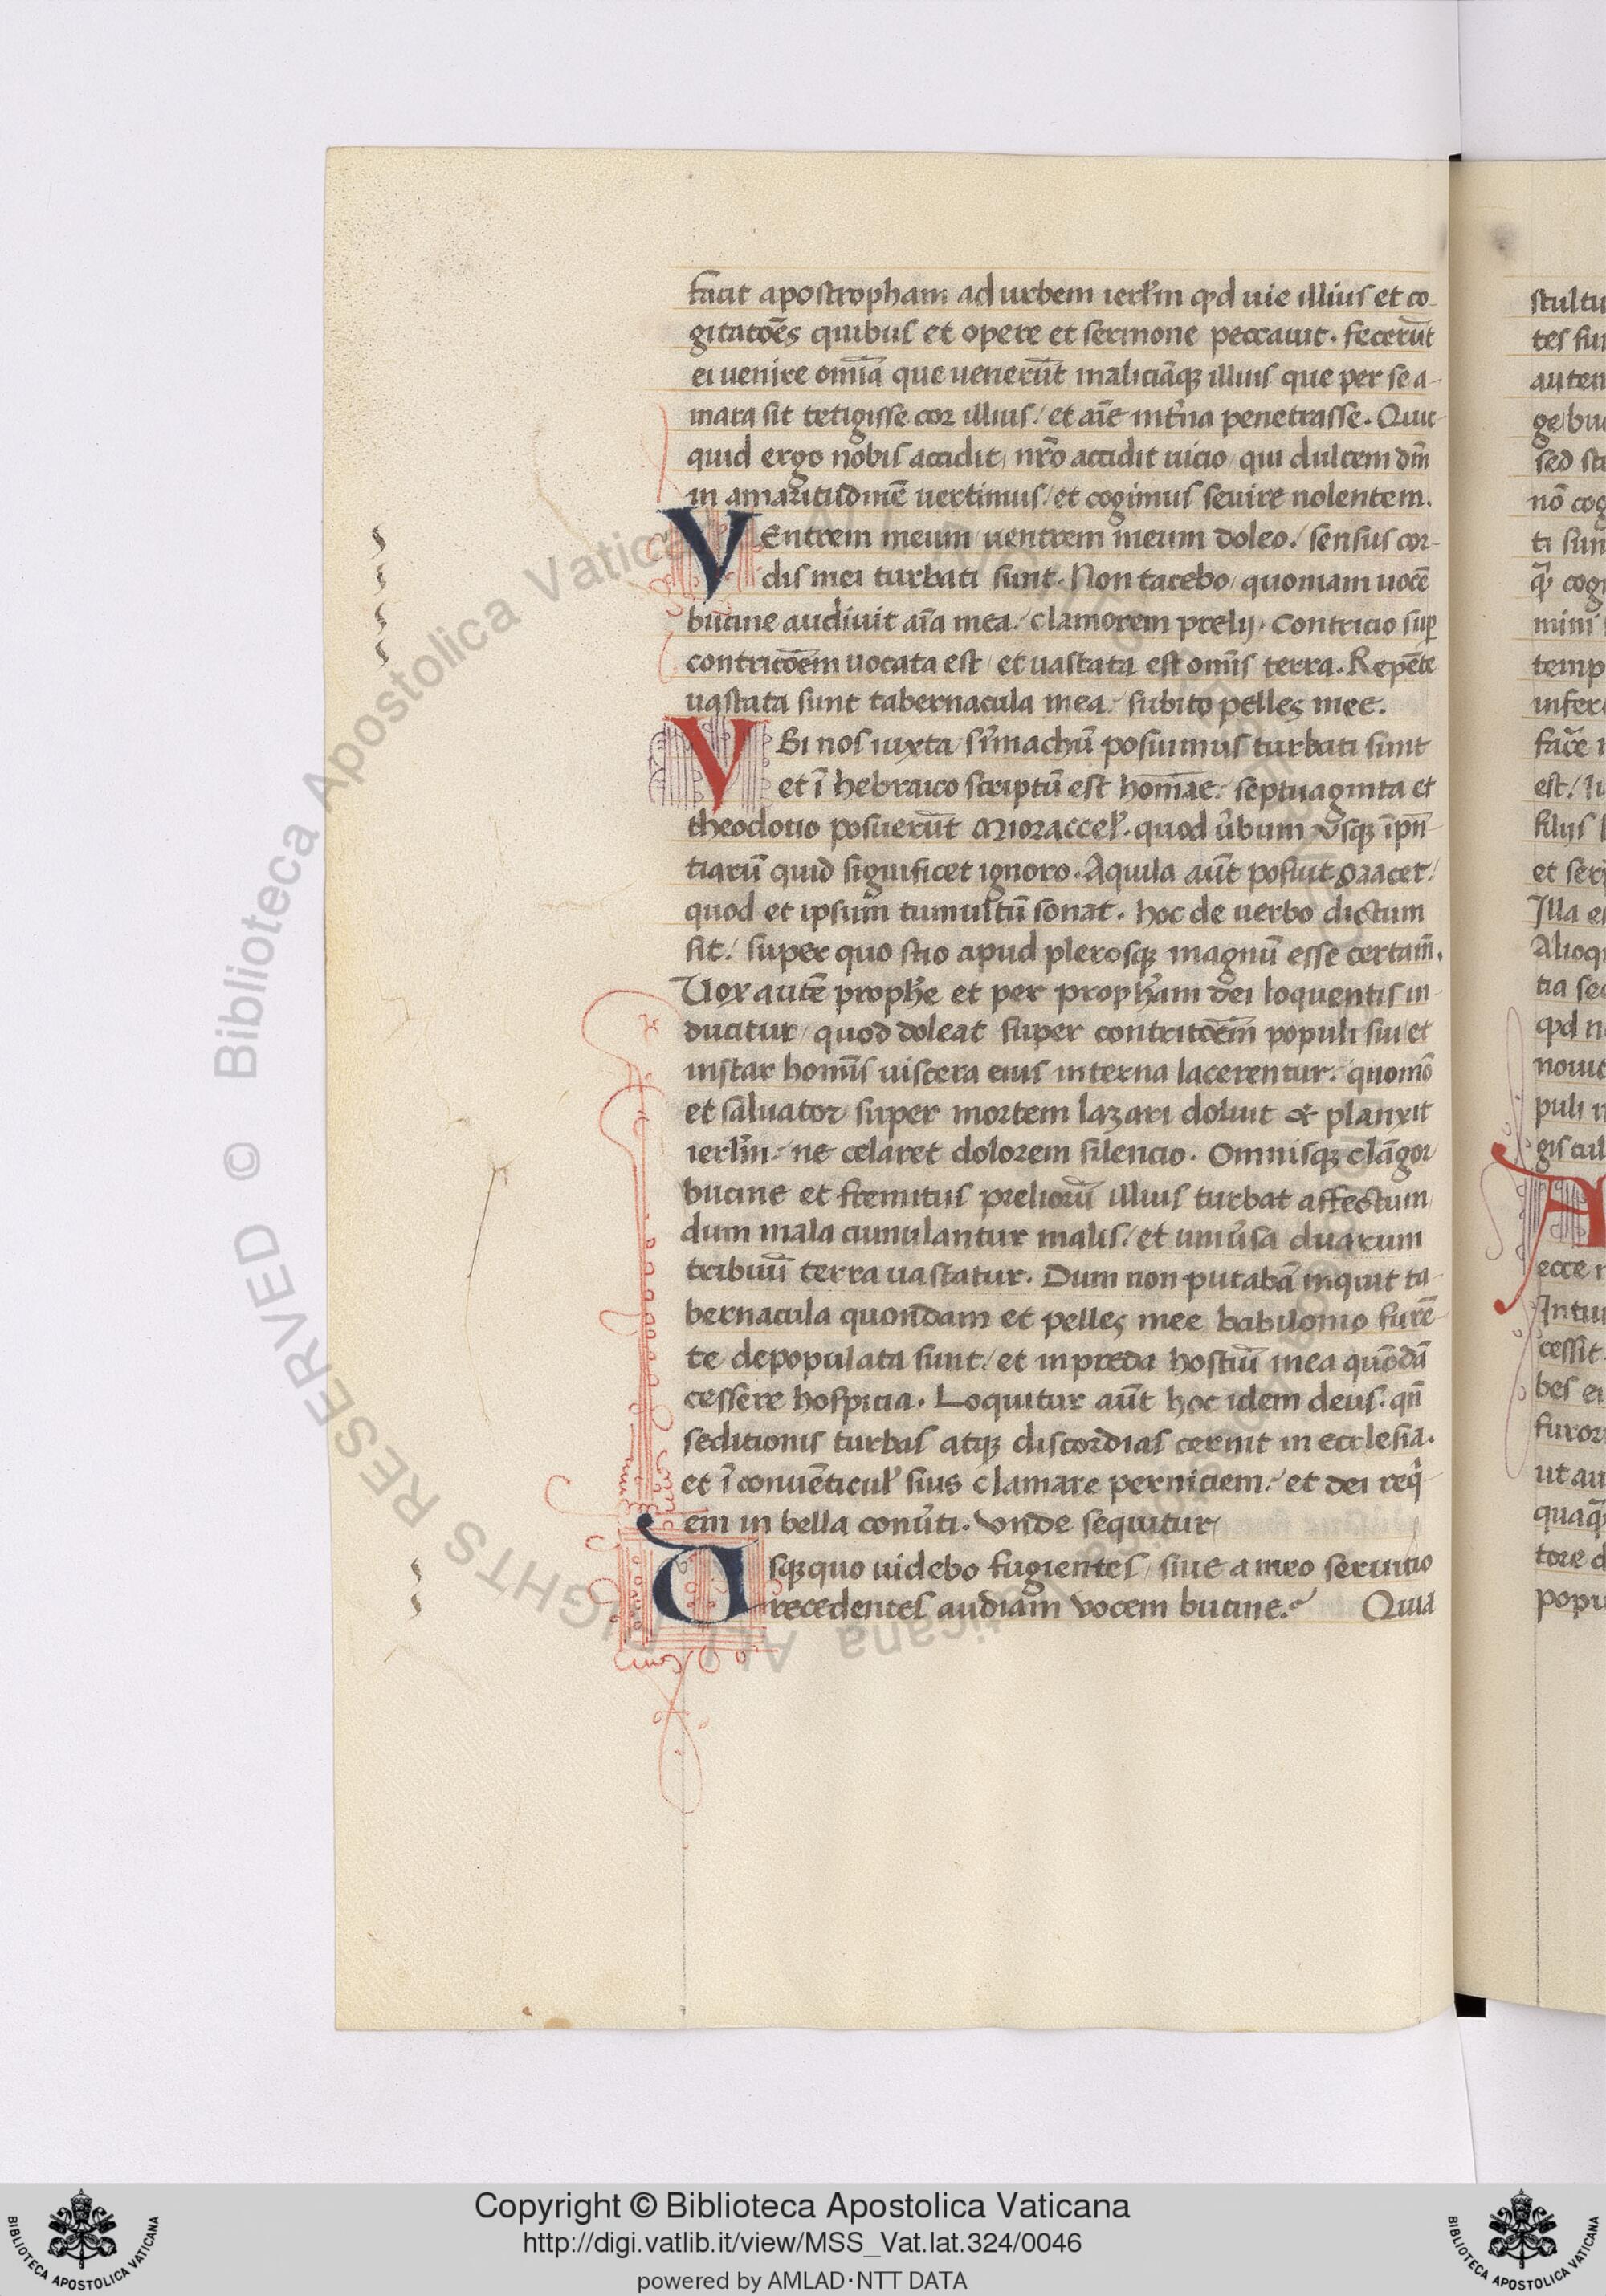 facit apostropham ad urbem ierłm qđ uie illius et co-
gitatōēs quibus et opere et sermone peccauit. fecerūt
ei uenire om̄ia que uenerūt maliciāqꝫ illius que per se a-
mara sit tetigisse cor illius / et aīe int̓na penetrasse. Quic-
quid ergo nobis accidit / nr̄o accidit uicio / qui dulcem dm̄
in amaritudinē uertimus / et cogimus seuire nolentem.
VEntrem meum / uentrem meum doleo / sensus cor-
dis mei turbati sunt. Non tacebo / quoniam uocē
bucine audiuit aīa mea / clamorem prelij. Contricio suꝑ
contricōēm uocata est / et uastata est om̄is terra. Repēte
uastata sunt tabernacula mea / subito pelles mee.
VBi nos iuxta sīmachū posuimus turbati sunt
et ī hebraico scriptū est homae / septuaginta et
theodotio posuerūt
quod u̓bum vsqꝫ īpn̄-
tiarū quid significet ignoro. Aquila aūt posuit
quod et ipsum tumultū sonat. hoc de uerbo dictum
sit / super quo scio apud plerosqꝫ magnū esse certam̄.
Uox autē prophe̓ et per propha̓m dei loquentis in-
ducitur / quod doleat super contritōēm populi sui et
instar hom̄is uiscera eius interna lacerentur / quomō
et saluator super mortem lazari doluit & planxit
ierłm / ne celaret dolorem silencio. Omnisqꝫ clāgor
bucine et fremitus preliorū illius turbat affectum /
dum mala cumulantur malis / et uniu̓sa duarum
tribuū terra uastatur. Dum non putabā inquit ta-
bernacula quondam et pelles mee babilonio furē-
te depopulata sunt / et in preda hostiū mea quōdā
cessere hospicia. Loquitur aūt hoc idem deus. qn̄
seditionis turbas atqꝫ discordias cernit in ecclesia.
et ī conuēticul̓ suis clamare perniciem / et dei reqͥ-
em in bella conu̓ti. Vnde sequitur /
Usqꝫquo uidebo fugientes / siue a meo seruitio
recedentes audiam vocem bucine / Quia
Copyright © Biblioteca Apostolica Vaticana
http://digi.vatlib.it/view/MSS_Vat.lat.324/0046
powered by AMLAD·NTT DATA
BIBLIOTECA APOSTOLICA VATICANA
BIBLIOTECA APOSTOLICA VATICANA